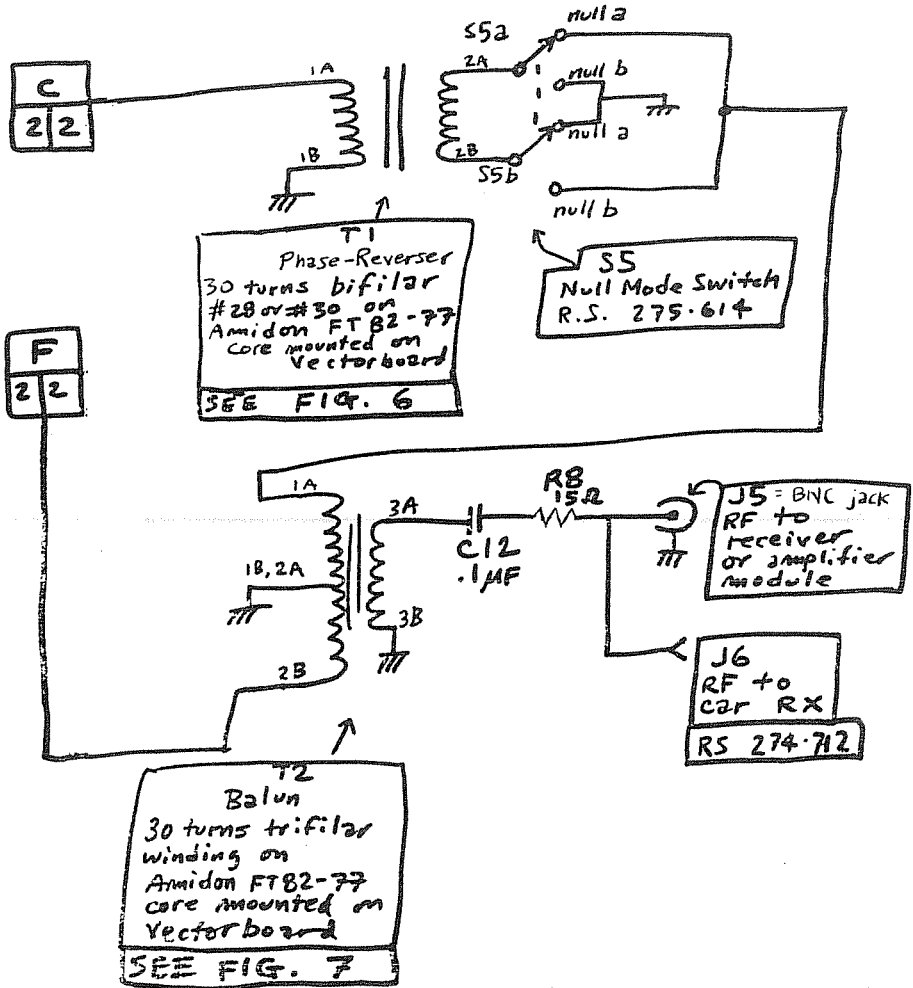 C
2 2
1A
1B
2A
2B
S5a
S5b
null a
null b
null a
null b
T1
Phase-Reverser
30 turns bifilar
#28 or #30 on
Amidon FT 82-77
core mounted on
Vectorboard
SEE FIG. 6
S5
Null Mode Switch
R.S. 275-614
F
2 2
1A
1B, 2A
2B
3A
3B
C12
.1µF
R8
15Ω
J5 = BNC jack
RF to
receiver
or amplifier
module
J6
RF to
car RX
RS 274-712
T2
Balun
30 turns trifilar
winding on
Amidon FT82-77
core mounted on
Vectorboard
SEE FIG. 7